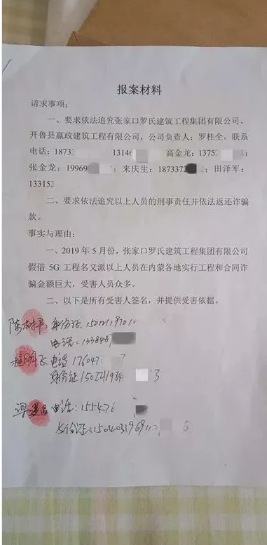 报案材料
请求事项：
一、要求依法追究张家口罗氏建筑工程集团有限公司，
开鲁县嬴政建筑工程有限公司，公司负责人：罗桂全，联系
电话：1873 1314 高金龙：1375
张金龙：19969 来庆生：187337 田泽军：
13315
二、要求依法追究以上人员的刑事责任并依法返还诈骗
款。
事实与理由：
一、2019年5月份，张家口罗氏建筑工程集团有限公司
假借5G工程名义派以上人员在内蒙各地实行工程和合同诈
骗金额巨大，受害人员众多。
二、以下是所有受害人签名，并提供受害依据。
身份证
电话：
电话 176047
身份证 3
电话：
身份证